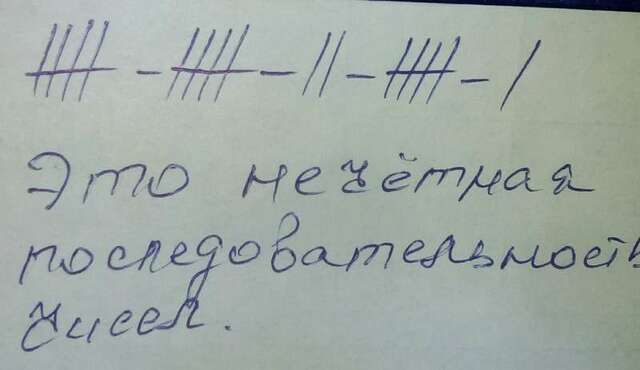 Это нечётная
последовательность
чисел.